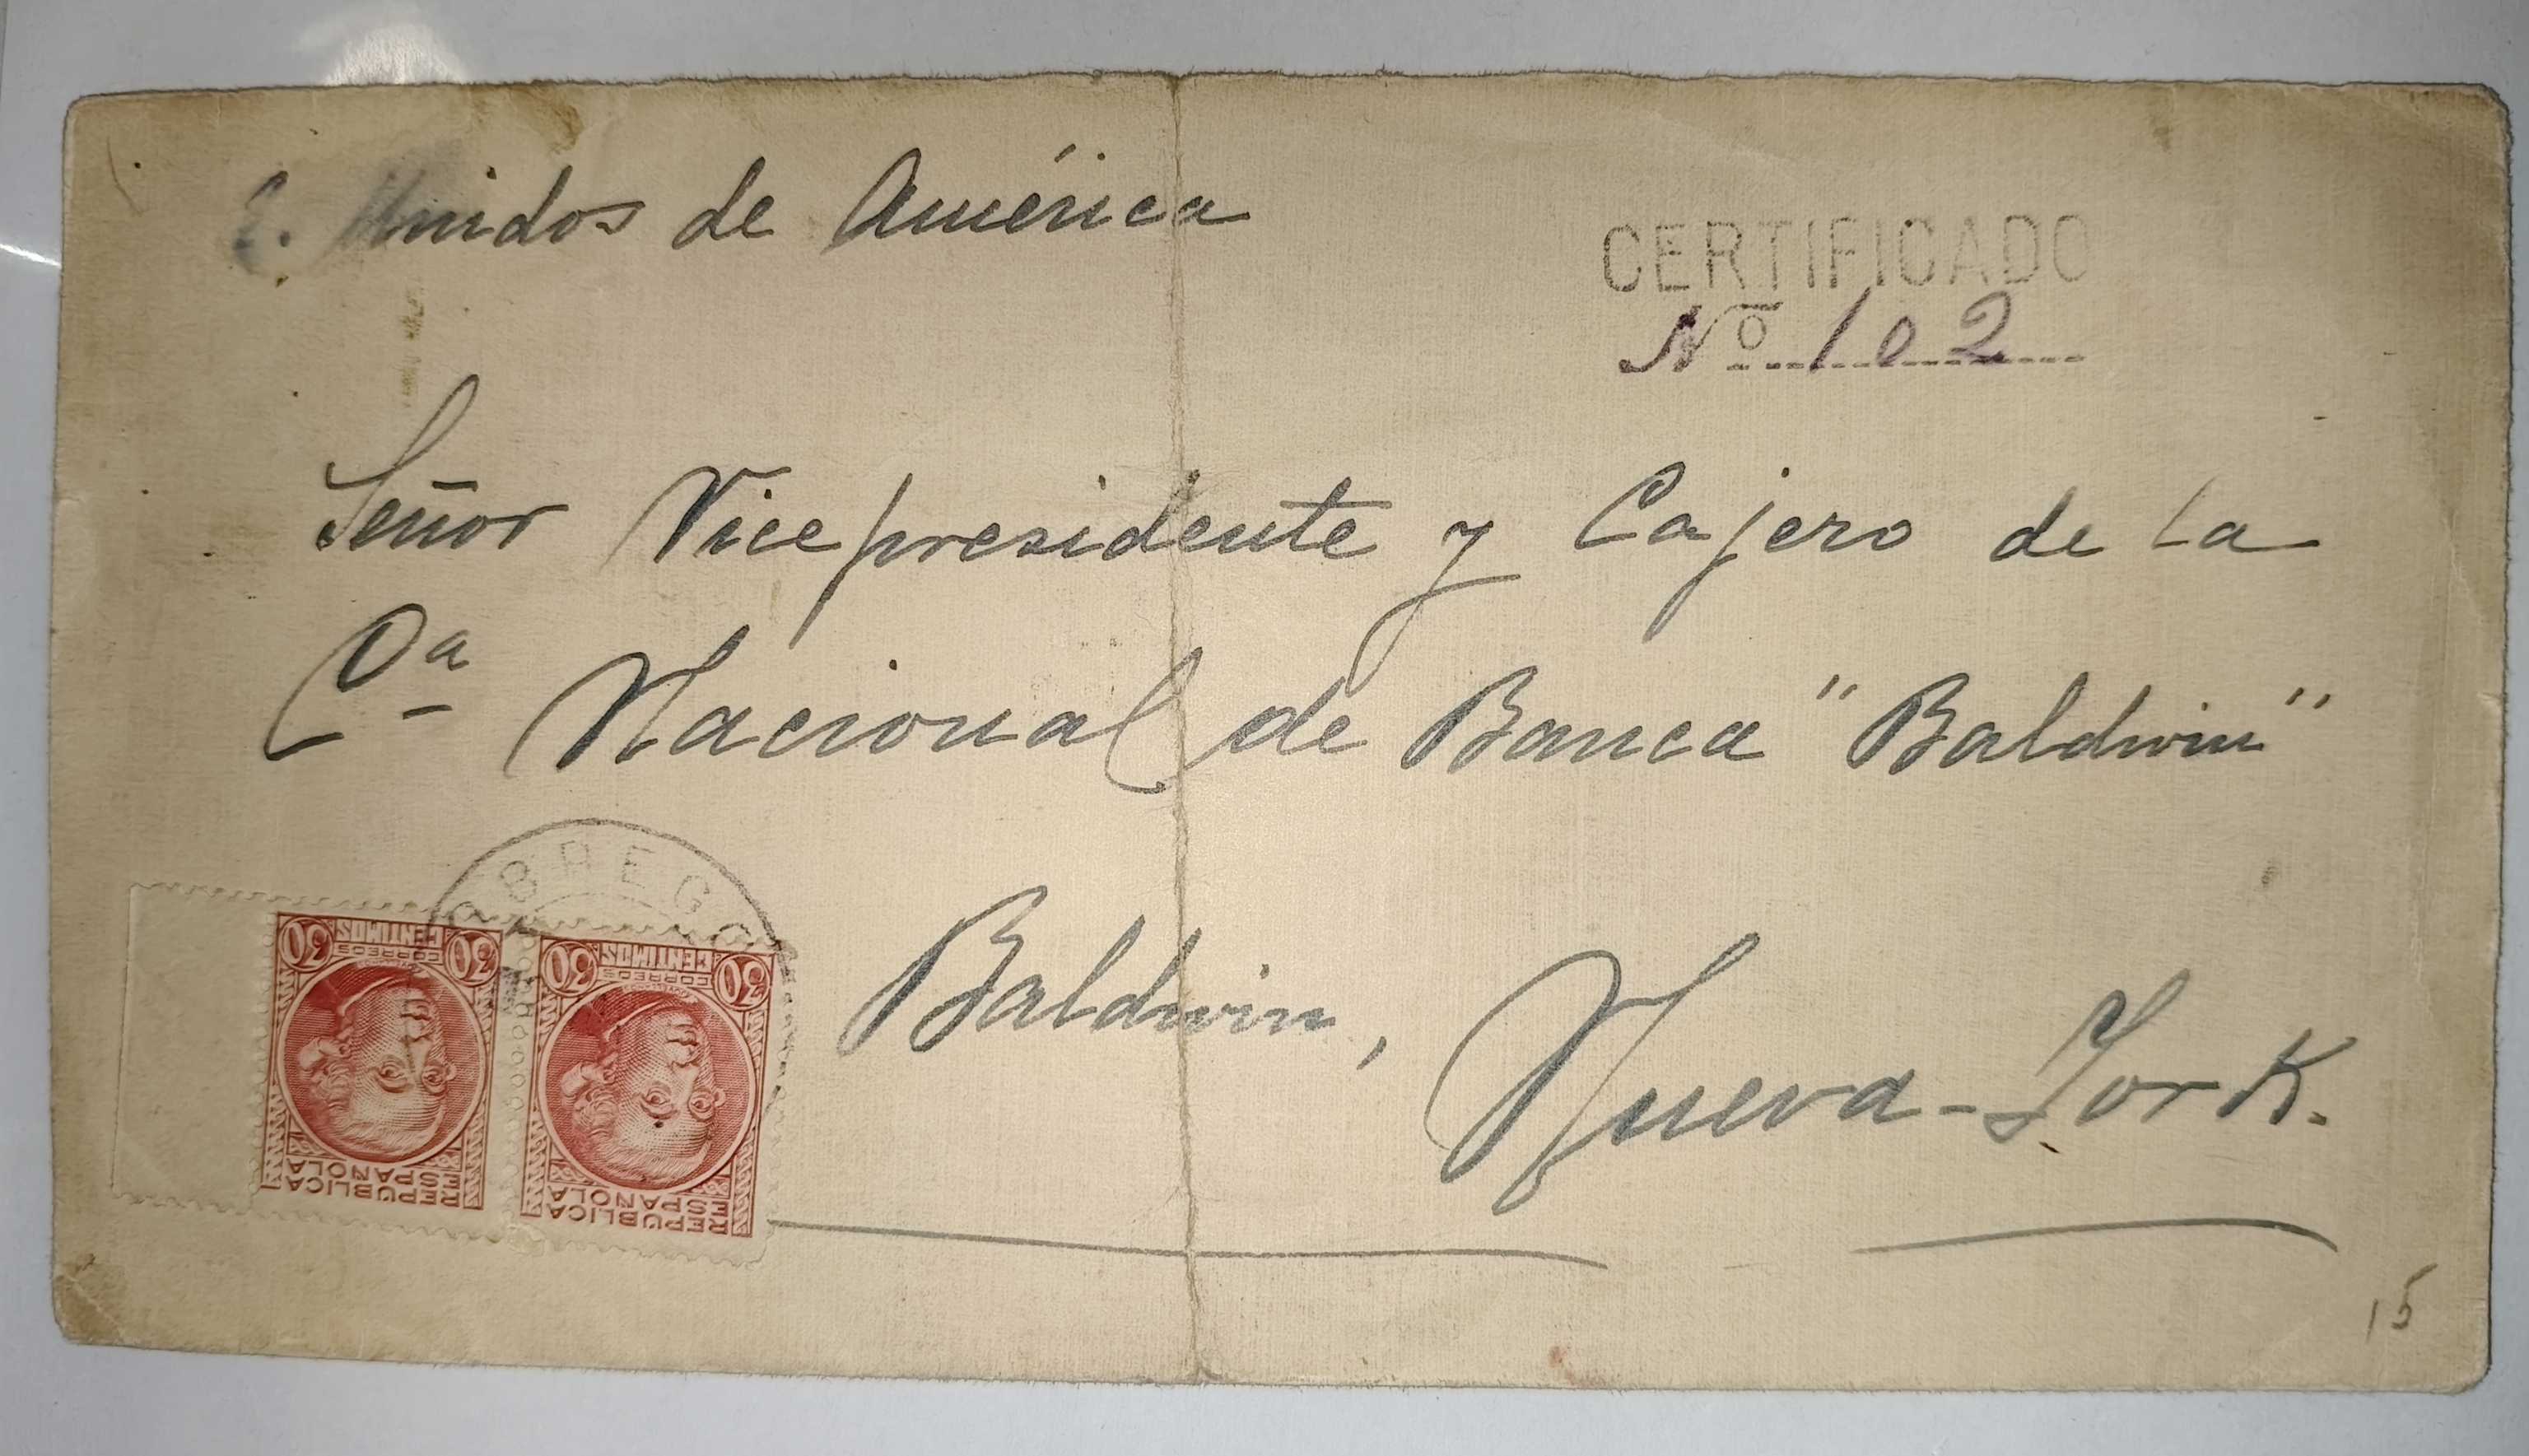 E. Unidos de América
CERTIFICADO
Nº 102
Señor Vicepresidente y Cajero de la
Cª Nacional de Banca "Baldwin"
Baldwin, Nueva-York.
30 CENTIMOS 30
CORREOS
REPUBLICA
ESPAÑOLA
30 CENTIMOS 30
CORREOS
REPUBLICA
ESPAÑOLA
15